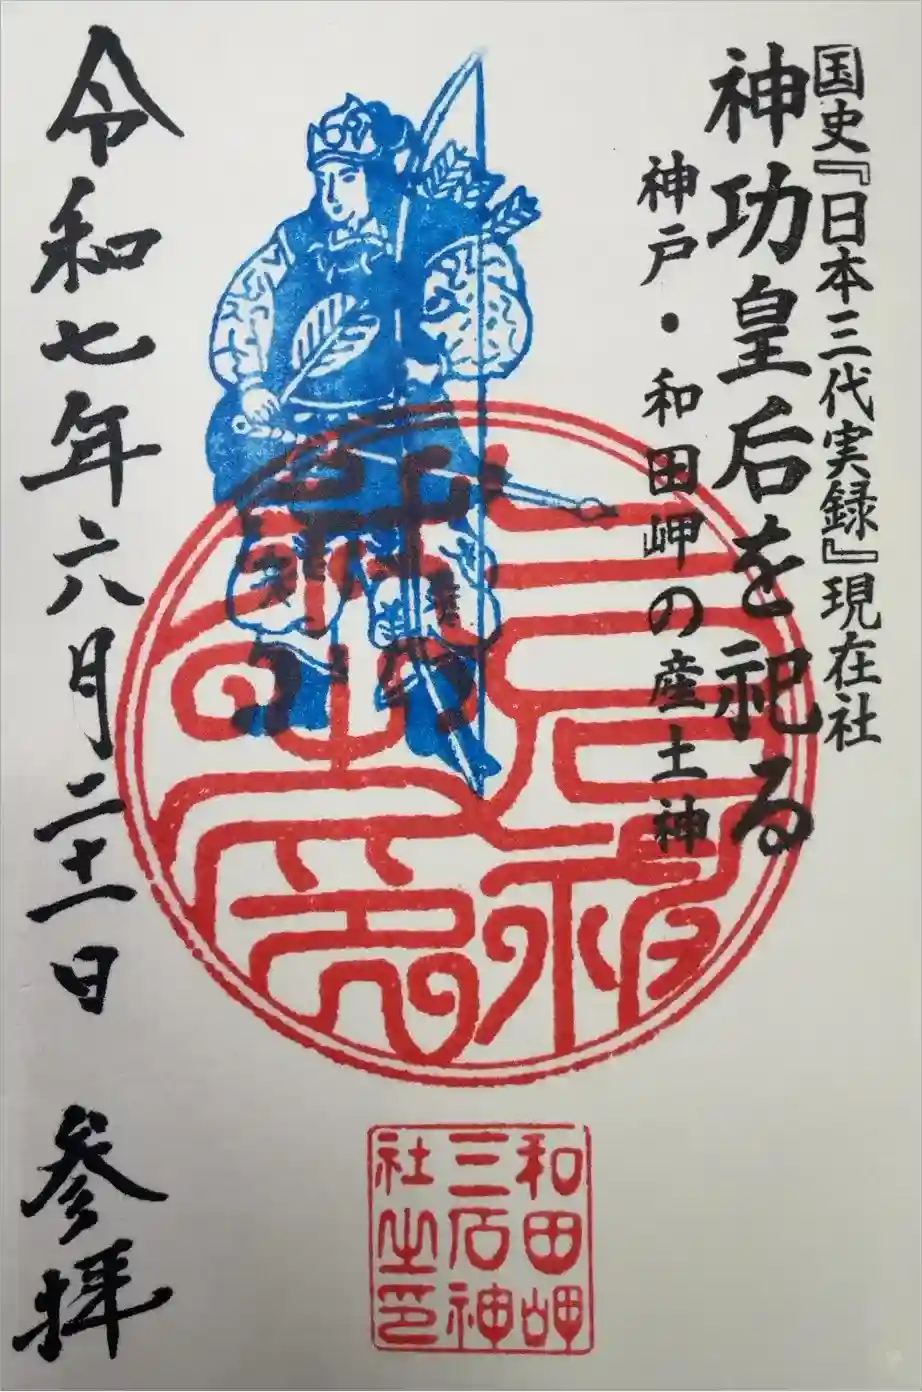 国史『日本三代実録』現在社
神功皇后を祀る
神戸・和田岬の産土神
三石神
社之印
和田岬
三石神
社之印
令和七年六月二十一日 参拝